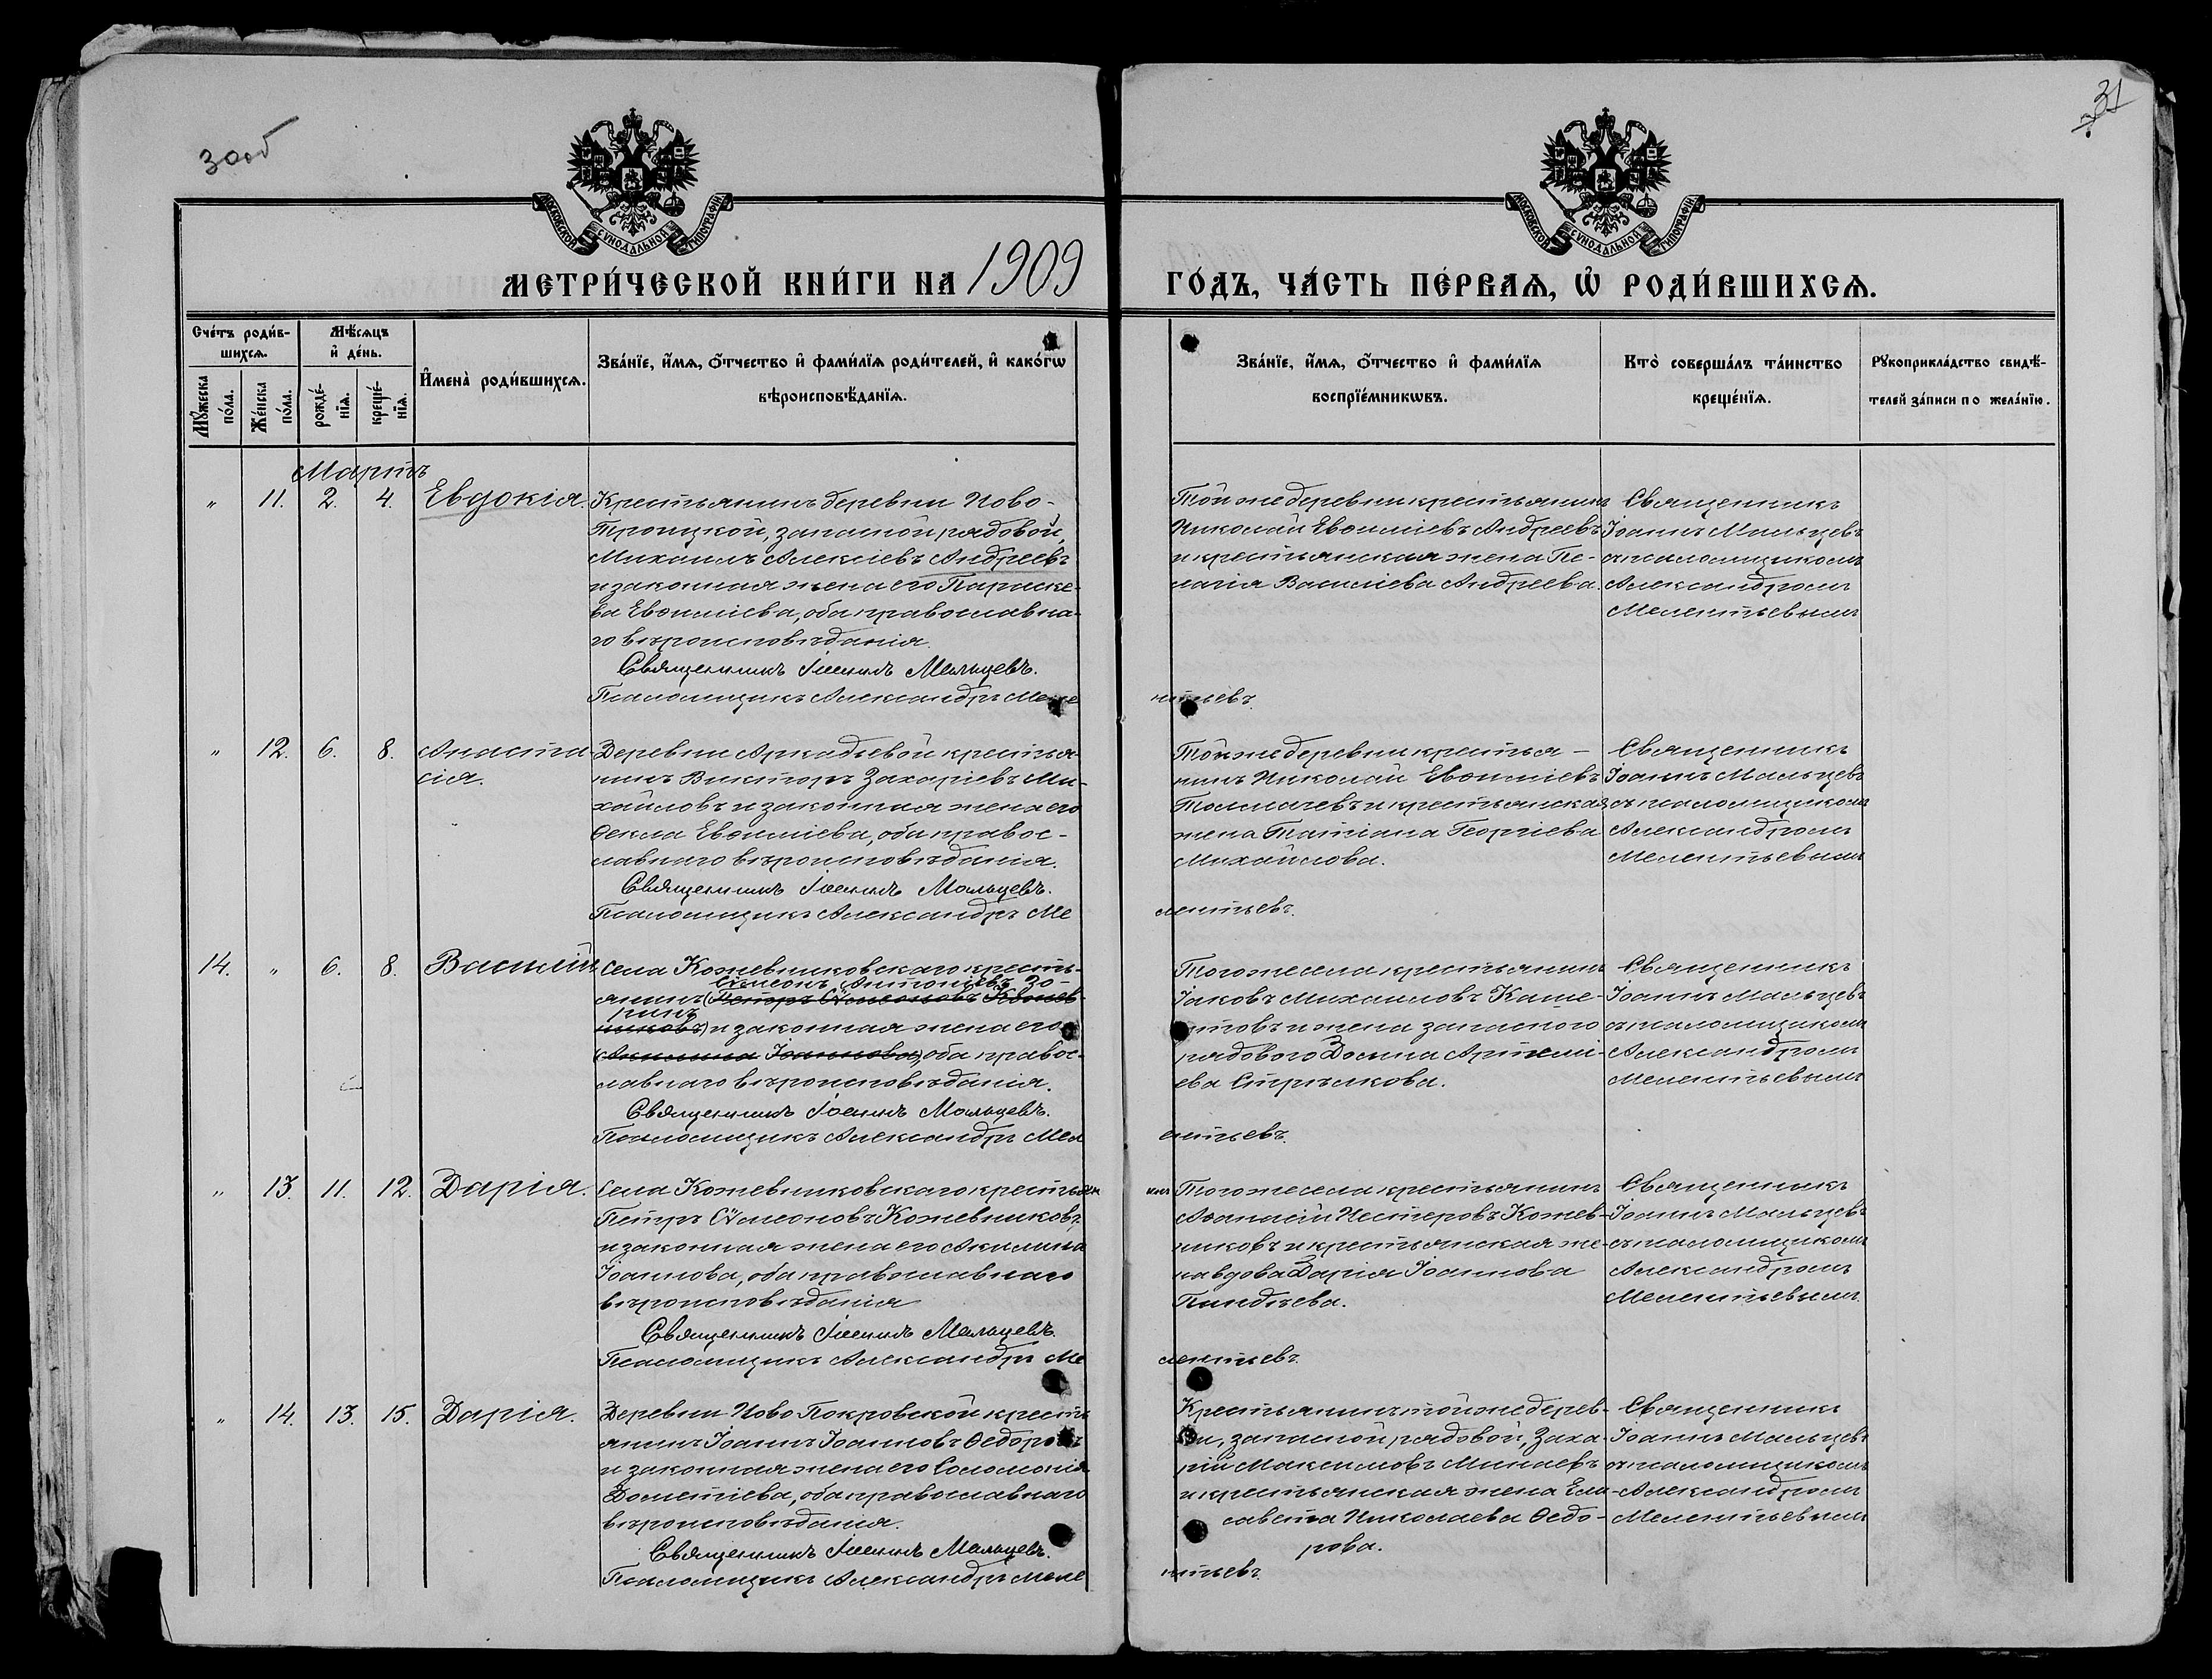 30об
31
МОСКОВСКОЙ СѴНОДАЛЬНОЙ ТИПОГРАФІИ
МОСКОВСКОЙ СѴНОДАЛЬНОЙ ТИПОГРАФІИ
МЕТРИ́ЧЕСКОЙ КНИ́ГИ НА 1909 ГО́ДЪ, ЧА́СТЬ ПЕ́РВАѦ, Ѡ҆ РОДИ́ВШИХСѦ.
Сче́тъ роди́в-
шихсѧ.
Мѣ́сѧцъ
и҆ де́нь.
Мꙋ́жеска
по́ла.
Же́нска
по́ла.
рожде́-
нїѧ.
креще́-
нїѧ.
И҆мена̀ роди́вшихсѧ.
Зва́нїе, и҆́мѧ, ѻ҆́тчество и҆ фами́лїѧ роди́телей, и҆ како́гѡ
вѣроисповѣ́данїѧ.
Зва́нїе, и҆́мѧ, ѻ҆́тчество и҆ фами́лїѧ
воспрїе́мникѡвъ.
Кто̀ соверша́лъ та́инство
креще́нїѧ.
Рꙋкоприкла́дство свидѣ́-
телей за́писи по жела́нїю.
Мартъ
" 11. 2. 4. Евдокія.
Крестьянинъ деревни Ново-
Троицкой, запасной рядовой,
Михаилъ Алексіевъ Андреевъ
и законная жена его Параске-
ва Евѳиміева, оба православна-
го вѣроисповѣданія.
Священникъ Іоаннъ Мальцевъ.
Псаломщикъ Александръ Меле
нтьевъ.
Той же деревни крестьянинъ
Николай Евѳиміевъ Андреевъ
и крестьянская жена Пе-
лагія Василіева Андреева.
Священникъ
Іоаннъ Мальцевъ
съ псаломщикомъ
Александромъ
Мелентьевымъ
" 12. 6. 8. Анаста-
сія.
Деревни Аркадьевой крестья-
нинъ Викторъ Захаріевъ Ми-
хайловъ и законная жена его
Ѳекла Евѳиміева, оба правос-
лавнаго вѣроисповѣданія.
Священникъ Іоаннъ Мальцевъ.
Псаломщикъ Александръ Ме
лентьевъ.
Той же деревни крестья-
нинъ Николай Евѳиміевъ
Толмачевъ и крестьянская
жена Татіана Георгіева
Михайлова.
Священникъ
Іоаннъ Мальцевъ
съ псаломщикомъ
Александромъ
Мелентьевымъ
14. " 6. 8. Василій
Села Кожевниковскаго кресть-
Сѵмеонъ Антоніевъ Зо-
янинъ (Петръ Сѵмеоновъ Кожев-
ринъ
никовъ) и законная жена его
(Акилина Іоаннова), оба правос-
лавнаго вѣроисповѣданія.
Священникъ Іоаннъ Мальцевъ.
Псаломщикъ Александръ Мел
ентьевъ.
Того же села крестьянинъ
Іаковъ Михаиловъ Каше-
и жена запасного
рядового Домна Артеми-
ева Стрѣлкова.
Священникъ
Іоаннъ Мальцевъ
съ псаломщикомъ
Александромъ
Мелентьевымъ
" 13. 11. 12. Дарія.
Села Кожевниковскаго крестьян
инъ
Петръ Сѵмеоновъ Кожевниковъ,
и законная жена его Акилина
Іоаннова, оба православнаго
вѣроисповѣданія
Священникъ Іоаннъ Мальцевъ.
Псаломщикъ Александръ Ме
лентьевъ.
Того же села крестьянинъ
Аѳанасій Нестеровъ Кожев-
никовъ и крестьянская же-
на вдова Дарія Іоаннова
Пиндѣева.
Священникъ
Іоаннъ Мальцевъ
съ псаломщикомъ
Александромъ
Мелентьевымъ
" 14. 13. 15. Дарія.
Деревни Ново Покровской кресть
янинъ Іоаннъ Іоанновъ Ѳедоровъ
и законная жена его Соломонія
Дометіева, оба православнаго
вѣроисповѣданія.
Священникъ Іоаннъ Мальцевъ.
Псаломщикъ Александръ Меле
нтьевъ
Крестьянинъ той же дерев-
ни, запасной рядовой, Заха-
рій Максимовъ Минаевъ
и крестьянская жена Ели-
савета Николаева Ѳедо-
рова.
Священникъ
Іоаннъ Мальцевъ
съ псаломщикомъ
Александромъ
Мелентьевымъ